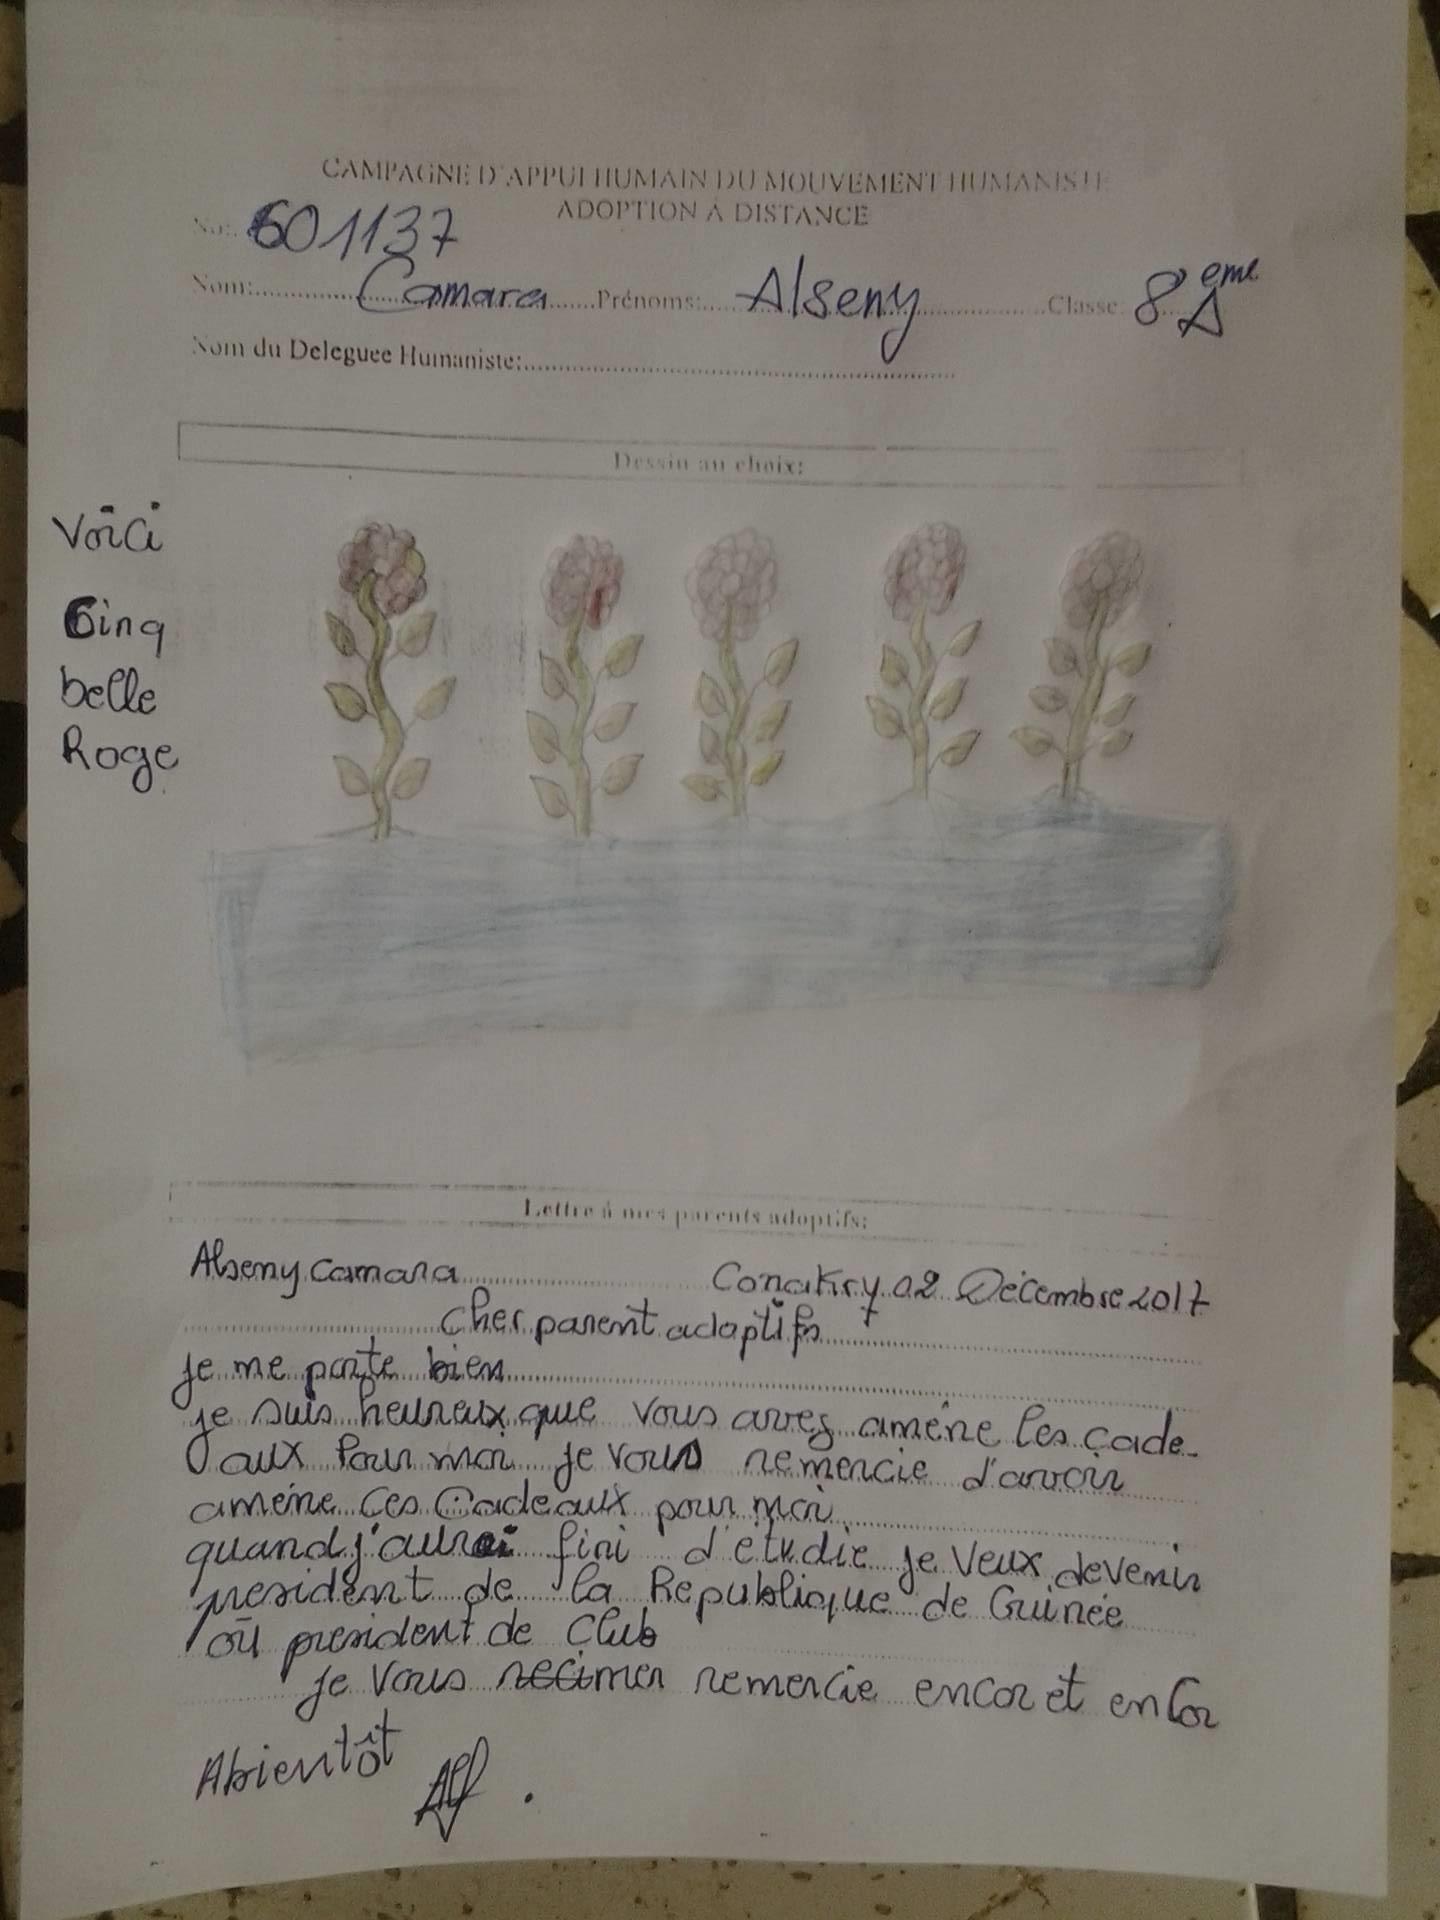 CAMPAGNE D'APPUI HUMAIN DU MOUVEMENT HUMANISTE
ADOPTION À DISTANCE
No: 601137
Nom: Camara Prénoms: Alseny Classe: 8eme A
Nom du Deleguee Humaniste:
Dessin au choix:
Voici
Cinq
belle
Roge
Lettre à mes parents adoptifs:
Alseny Camara Conakry 02 Décembre 2017
Cher parent adoptifs
je me porte bien
je suis heureux que vous avez amène les cade-
aux Pour moi je vous remercie d'avoir
amène ces Cadeaux pour moi
quand j'aurai fini d'étudie je veux devenir
president de la Republique de Guinée
ou president de Club
je vous remercie encor et encor
Abientôt